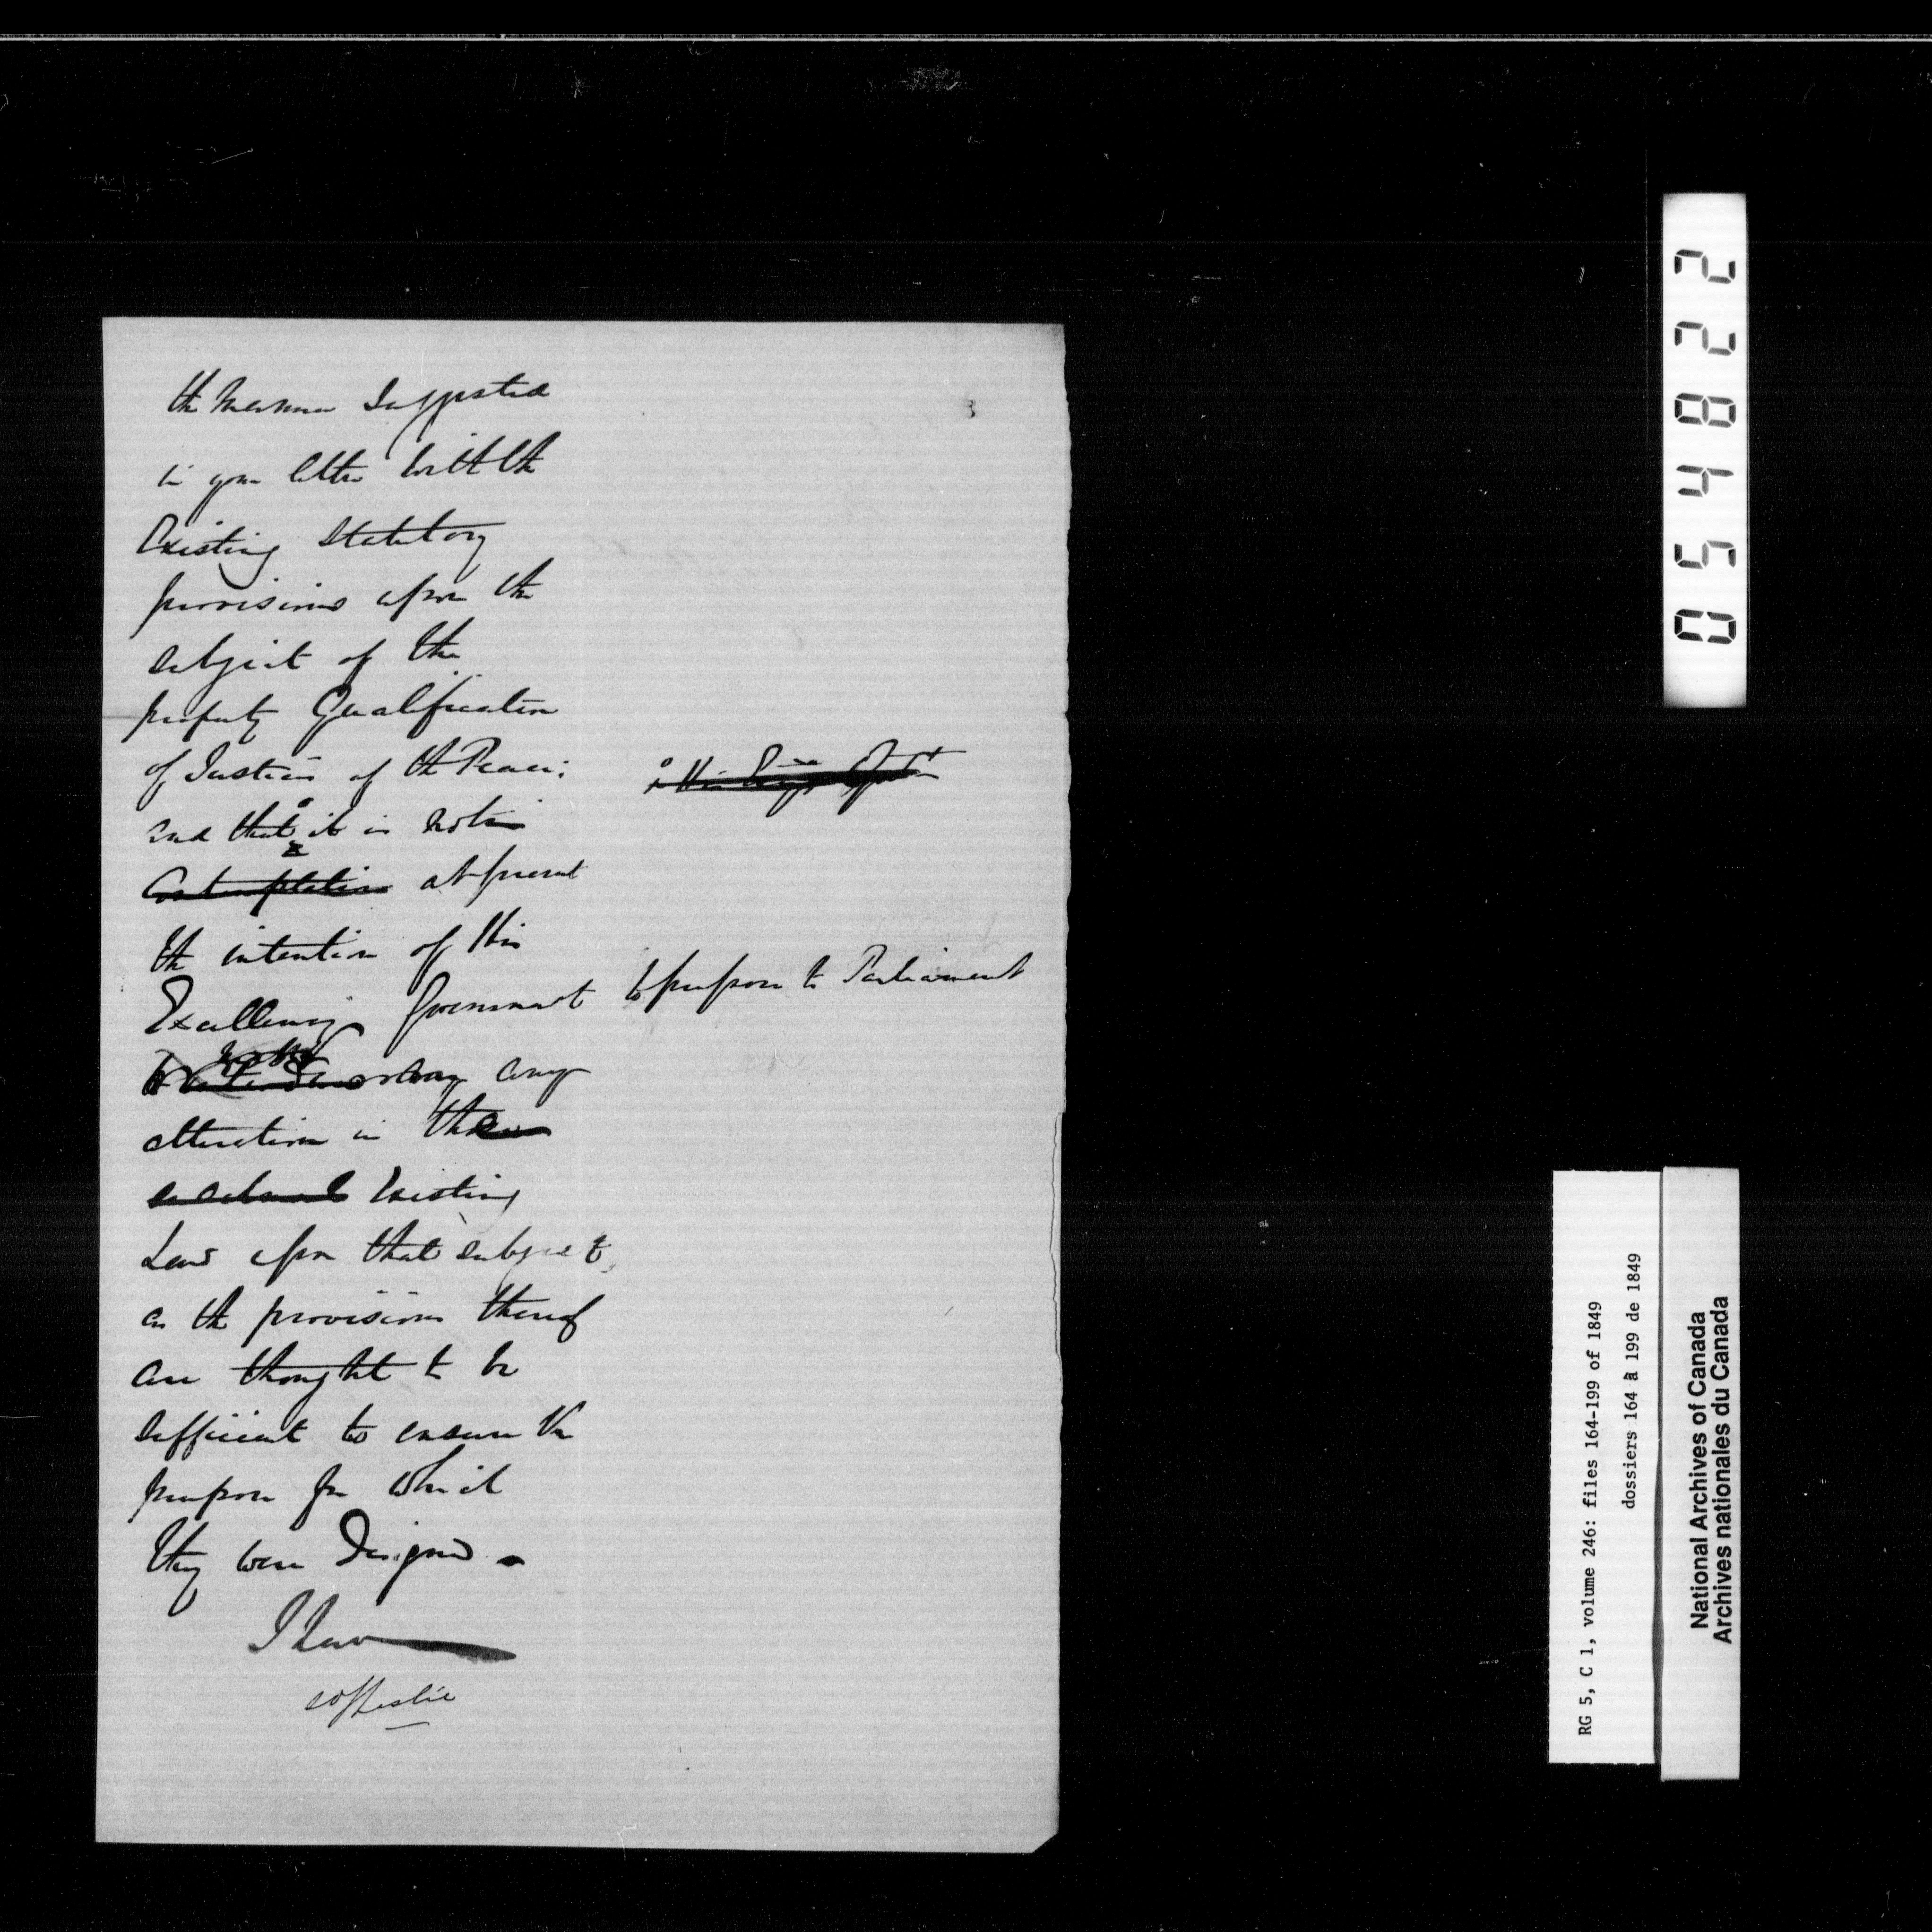 the manner suggested
in your letter with the
Existing Statutory
provisions upon the
subject of the
property Qualification
of Justices of the Peace;
and that it is not in
Contemplation at present
the intention of His
Excellency Government to propose to Parliament
any
alteration in the
Existing
Laws upon that subject
as the provisions thereof
are thought to be
sufficient to ensure the
purpose for which
they were designed -
I have
054822
RG 5, C 1, volume 246: files 164-199 of 1849
dossiers 164 à 199 de 1849
National Archives of Canada
Archives nationales du Canada